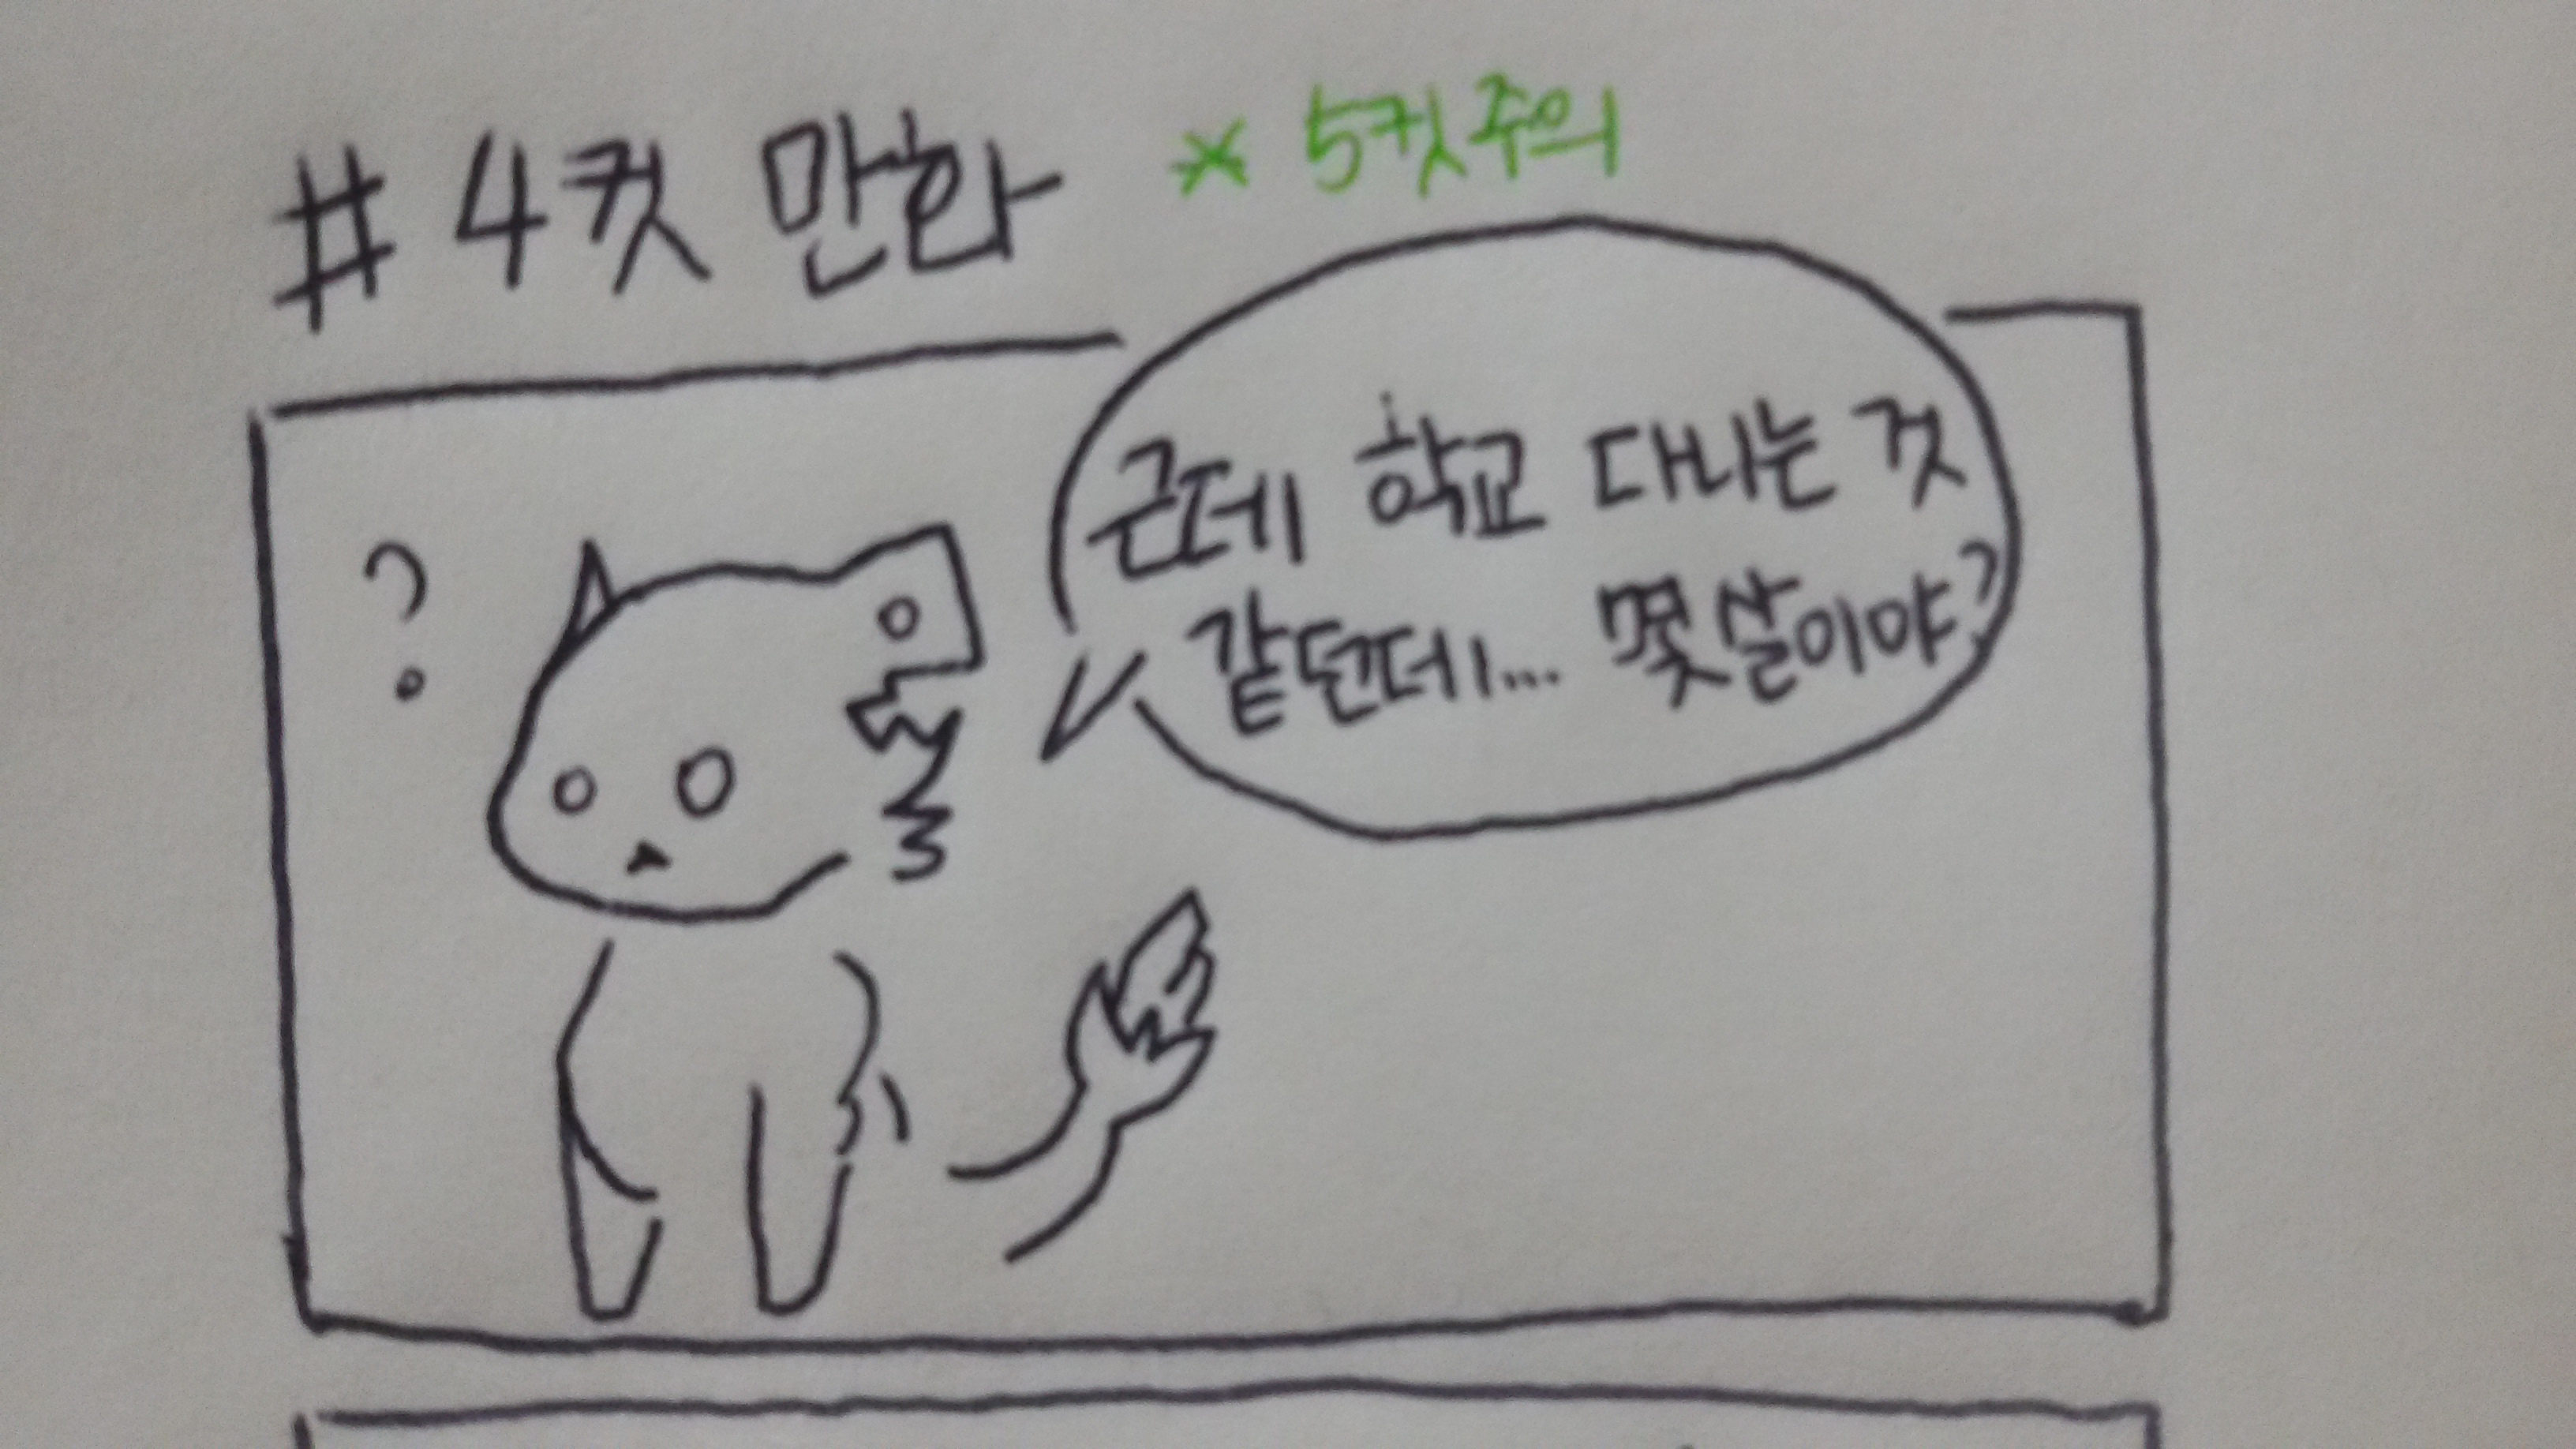 # 4컷 만화 * 5컷주의
근데 학교 다니는 것
같던데... 몇살이야?
?